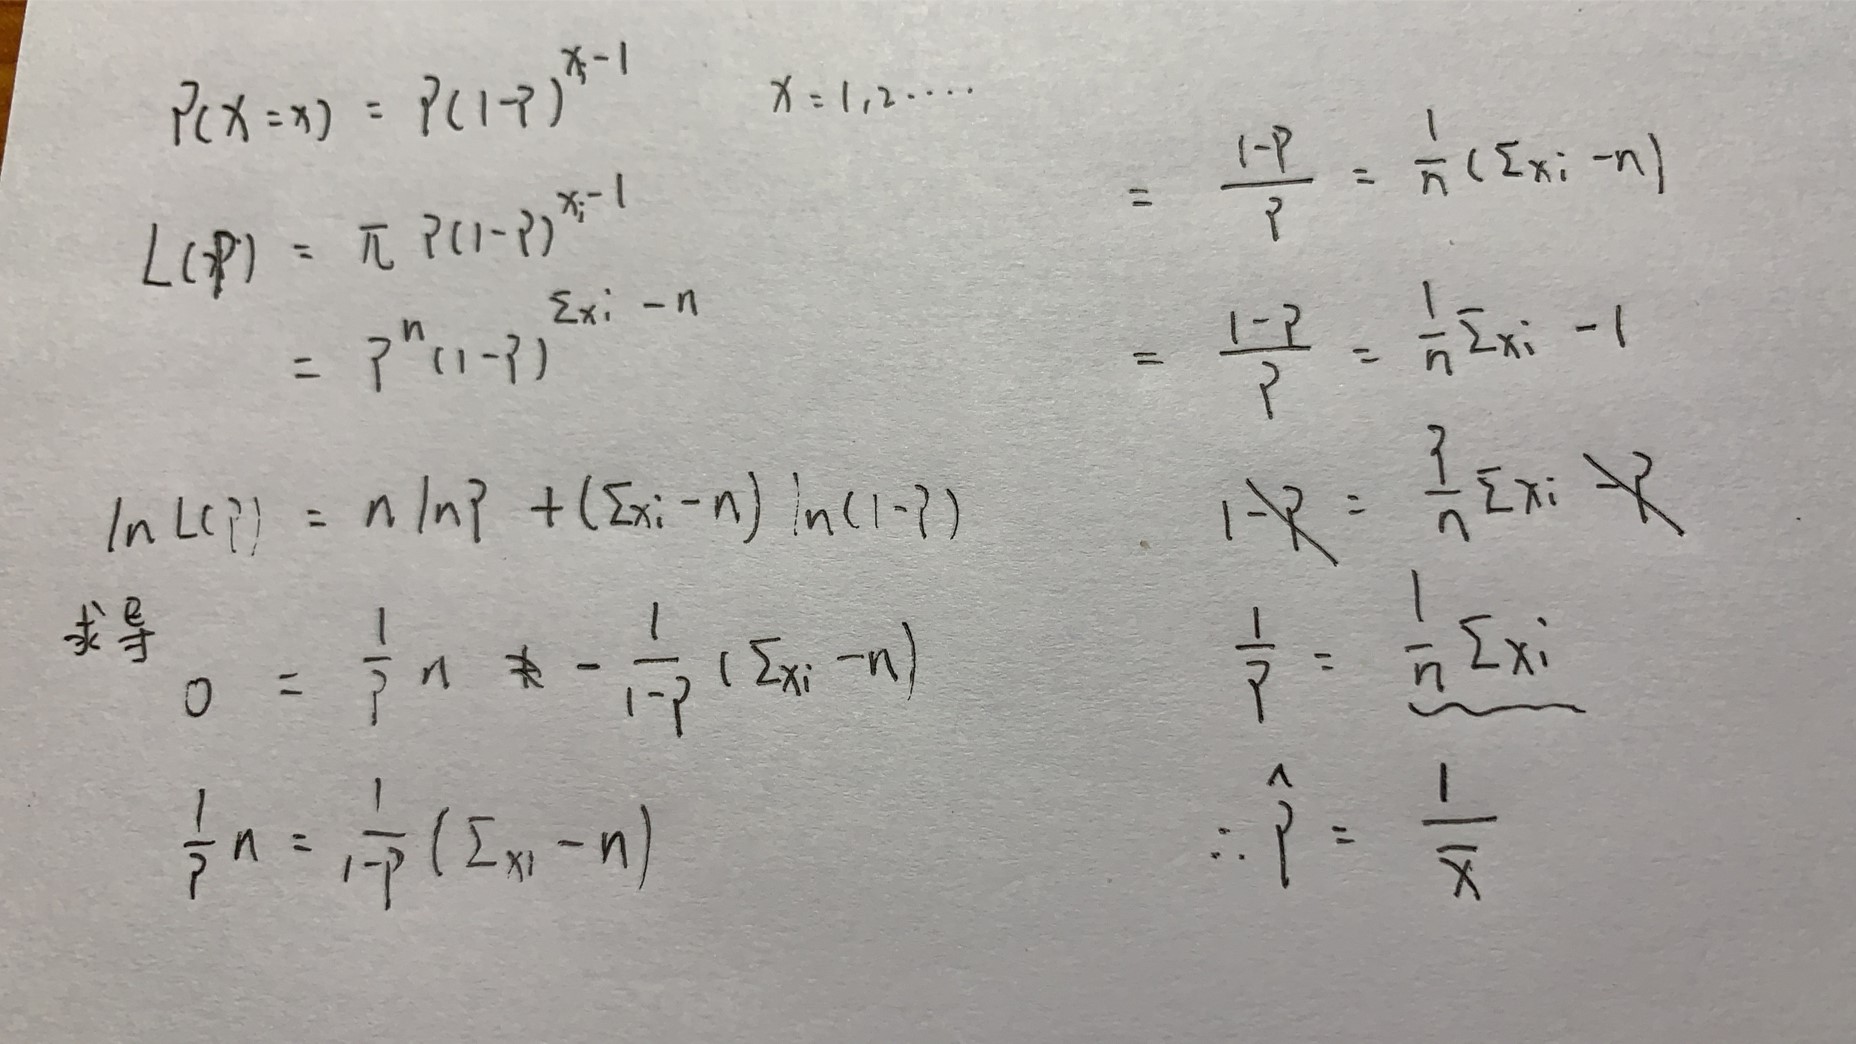 P(X=x) = P(1-P)^{x_i-1}    x = 1, 2 ····
L(P) = π P(1-P)^{x_i-1}
= P^n (1-P)^{Σx_i - n}
ln L(P) = n ln P + (Σx_i - n) ln(1-P)
求导
0 = \frac{1}{P} n - \frac{1}{1-P} (Σx_i - n)
\frac{1}{P} n = \frac{1}{1-P} (Σx_i - n)
= \frac{1-P}{P} = \frac{1}{n} (Σx_i - n)
= \frac{1-P}{P} = \frac{1}{n} Σx_i - 1
1-P = \frac{P}{n} Σx_i - P
\frac{1}{P} = \frac{1}{n} Σx_i
∴ \hat{P} = \frac{1}{\bar{x}}